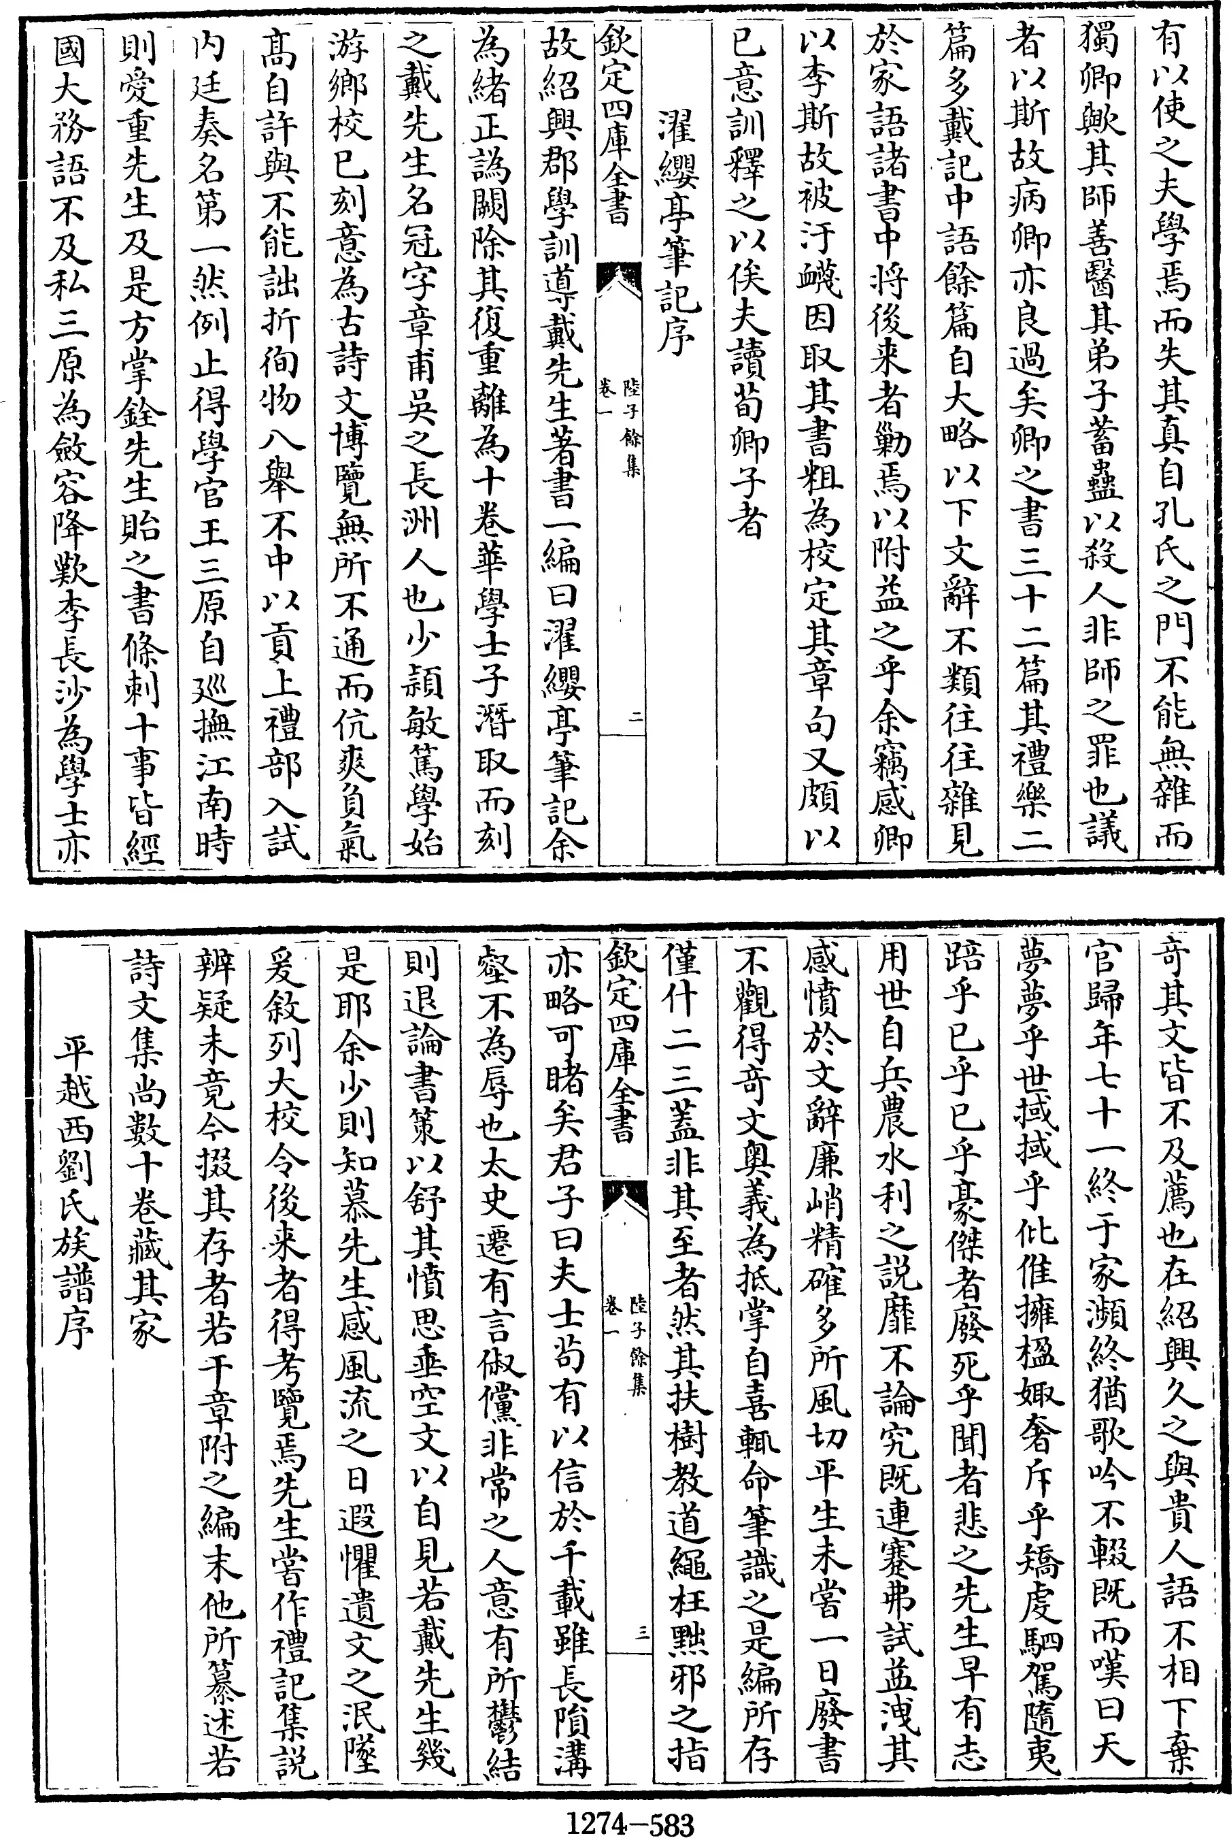 有以使之夫學焉而失其真自孔氏之門不能無雜而
獨卿歟其師善醫其弟子蓄蠱以殺人非師之罪也議
者以斯故病卿亦良過矣卿之書三十二篇其禮樂二
篇多戴記中語餘篇自大略以下文辭不類往往雜見
於家語諸書中將後来者勦焉以附益之乎余竊感卿
以李斯故被汙衊因取其書粗為校定其章句又頗以
已意訓釋之以俟夫讀荀卿子者
濯纓亭筆記序
欽定四庫全書
陸子餘集
卷一
二
故紹興郡學訓導戴先生著書一編曰濯纓亭筆記余
為緒正譌闕除其復重離為十卷華學士子潛取而刻
之戴先生名冠字章甫吳之長洲人也少穎敏篤學始
游鄉校已刻意為古詩文博覽無所不通而伉爽負氣
高自許與不能詘折徇物八舉不中以貢上禮部入試
内廷奏名第一然例止得學官王三原自廵撫江南時
則愛重先生及是方掌銓先生貽之書條刺十事皆經
國大務語不及私三原為斂容降歎李長沙為學士亦
奇其文皆不及薦也在紹興久之與貴人語不相下棄
官歸年七十一終于家瀕終猶歌吟不輟既而嘆曰天
夢夢乎世棫棫乎仳倠擁楹娵奢斥乎矯虔駟駕隨夷
踣乎已乎已乎豪傑者廢死乎聞者悲之先生早有志
用世自兵農水利之説靡不論究既連蹇弗試益洩其
感憤於文辭廉峭精確多所風切平生未嘗一日廢書
不觀得奇文奥義為抵掌自喜輒命筆識之是編所存
僅什二三蓋非其至者然其扶樹教道繩枉黜邪之指
欽定四庫全書
陸子餘集
卷一
三
亦略可睹矣君子曰夫士茍有以信於千載雖長隕溝
壑不為辱也太史遷有言俶儻非常之人意有所鬱結
則退論書策以舒其憤思垂空文以自見若戴先生幾
是耶余少則知慕先生感風流之日遐懼遺文之泯墜
爰敘列大校令後来者得考覽焉先生嘗作禮記集説
辨疑未竟今掇其存者若干章附之編末他所纂述若
詩文集尚數十卷藏其家
平越西劉氏族譜序
1274-583